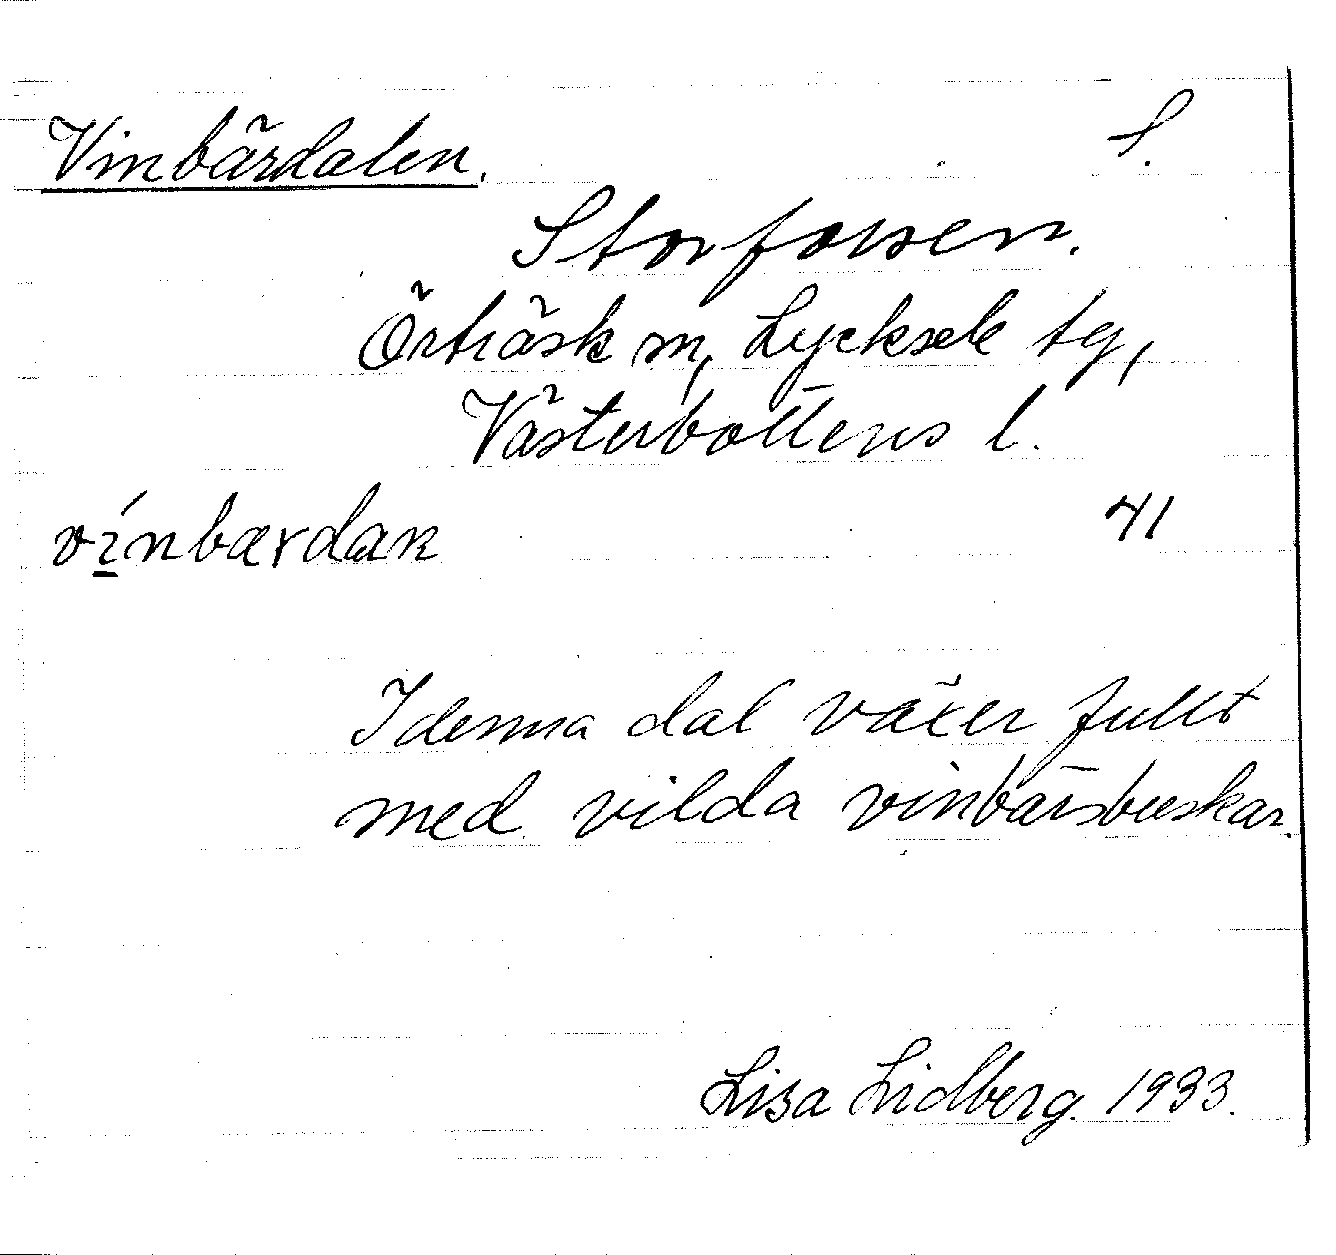 Vinbärdalen. S.
Storforsen.
Örträsk sn, Lycksele tg,
Västerbottens l.
vínbærdan 41
I denna dal växer fullt
med vilda vinbärsbuskar.
Lisa Lidberg. 1933.